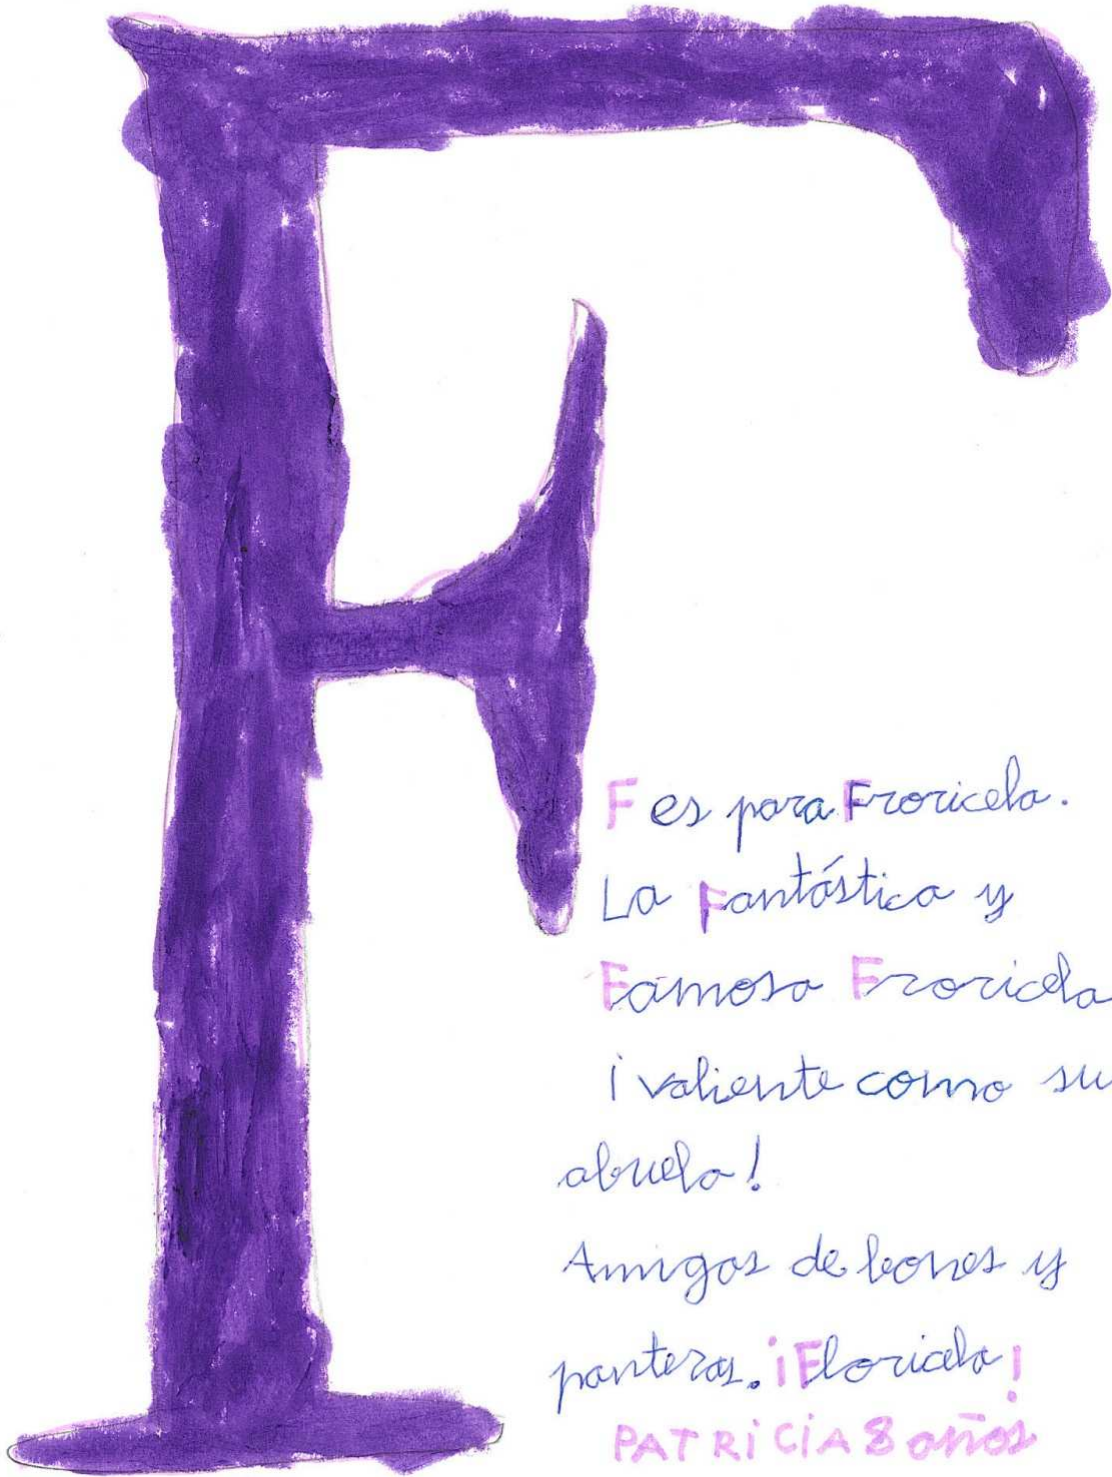 F
F es para Froricela.
La Fantástica y
Famosa Froricela
¡valiente como su
abuela!
Amigos de leones y
panteras. ¡Floricela!
PATRICIA 8 años